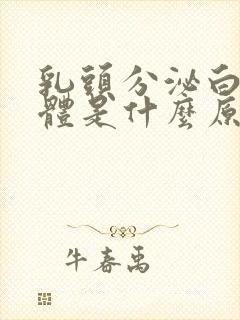 乳頭分泌白
體是什麼原
牛春禹